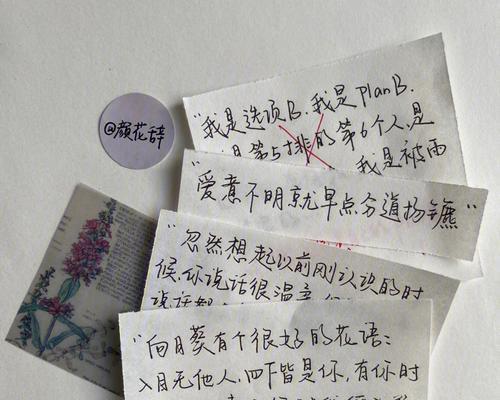 @颜花辞
"我是选项B.我是planB.
是第5排的第6个人,是
我是被雨
"爱意不明就早点分道扬镳"
"忽然想起以前刚认识的时
候,你说话很温柔,
说话都
"向日葵有个很好的花语:
入目无他人,四下皆是你,有你时